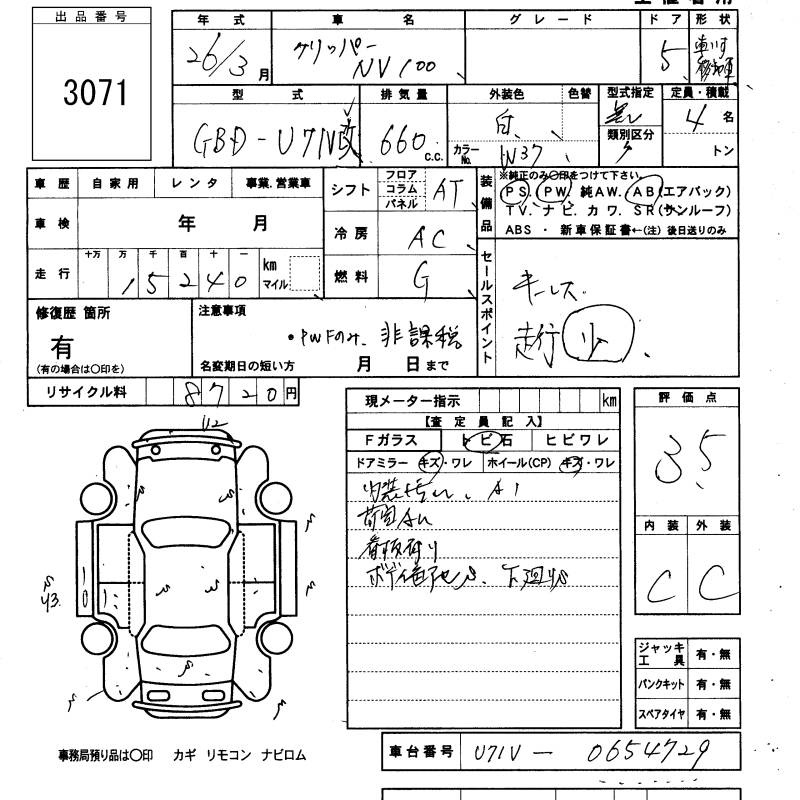 出品番号
3071
年式 車名 グレード ドア 形状
26/3月 クリッパー NV100 5 車いす移動車
型式 排気量 外装色 色替 型式指定 定員・積載
GBD-U71V改 660 c.c. 白 無 4 名
カラーNo. W37 類別区分 トン
車歴 自家用 レンタ 事業.営業車
車検 年 月
走行 十万 万 千 百 十 一 km マイル
15240
シフト フロア コラム パネル AT
冷房 AC
燃料 G
装備品
※純正のみ〇印をつけて下さい。
PS. PW. 純AW. AB(エアバック)
TV. ナビ. カワ. SR(サンルーフ)
ABS ・ 新車保証書←(注)後日送りのみ
セールスポイント
キーレス.
走行 少
修復歴 箇所
有
(有の場合は〇印を)
注意事項
・PWFのみ. 非課税
名変期日の短い方 月 日まで
リサイクル料 8720円
現メーター指示 km
【査定員記入】
Fガラス トビ石 ヒビワレ
ドアミラー キズ・ワレ ホイール(CP) キズ・ワレ
A1
ボディ
評価点
3.5
内装 外装
C C
ジャッキ工具 有・無
パンクキット 有・無
スペアタイヤ 有・無
事務局預り品は〇印 カギ リモコン ナビロム
車台番号 U71V - 0654729